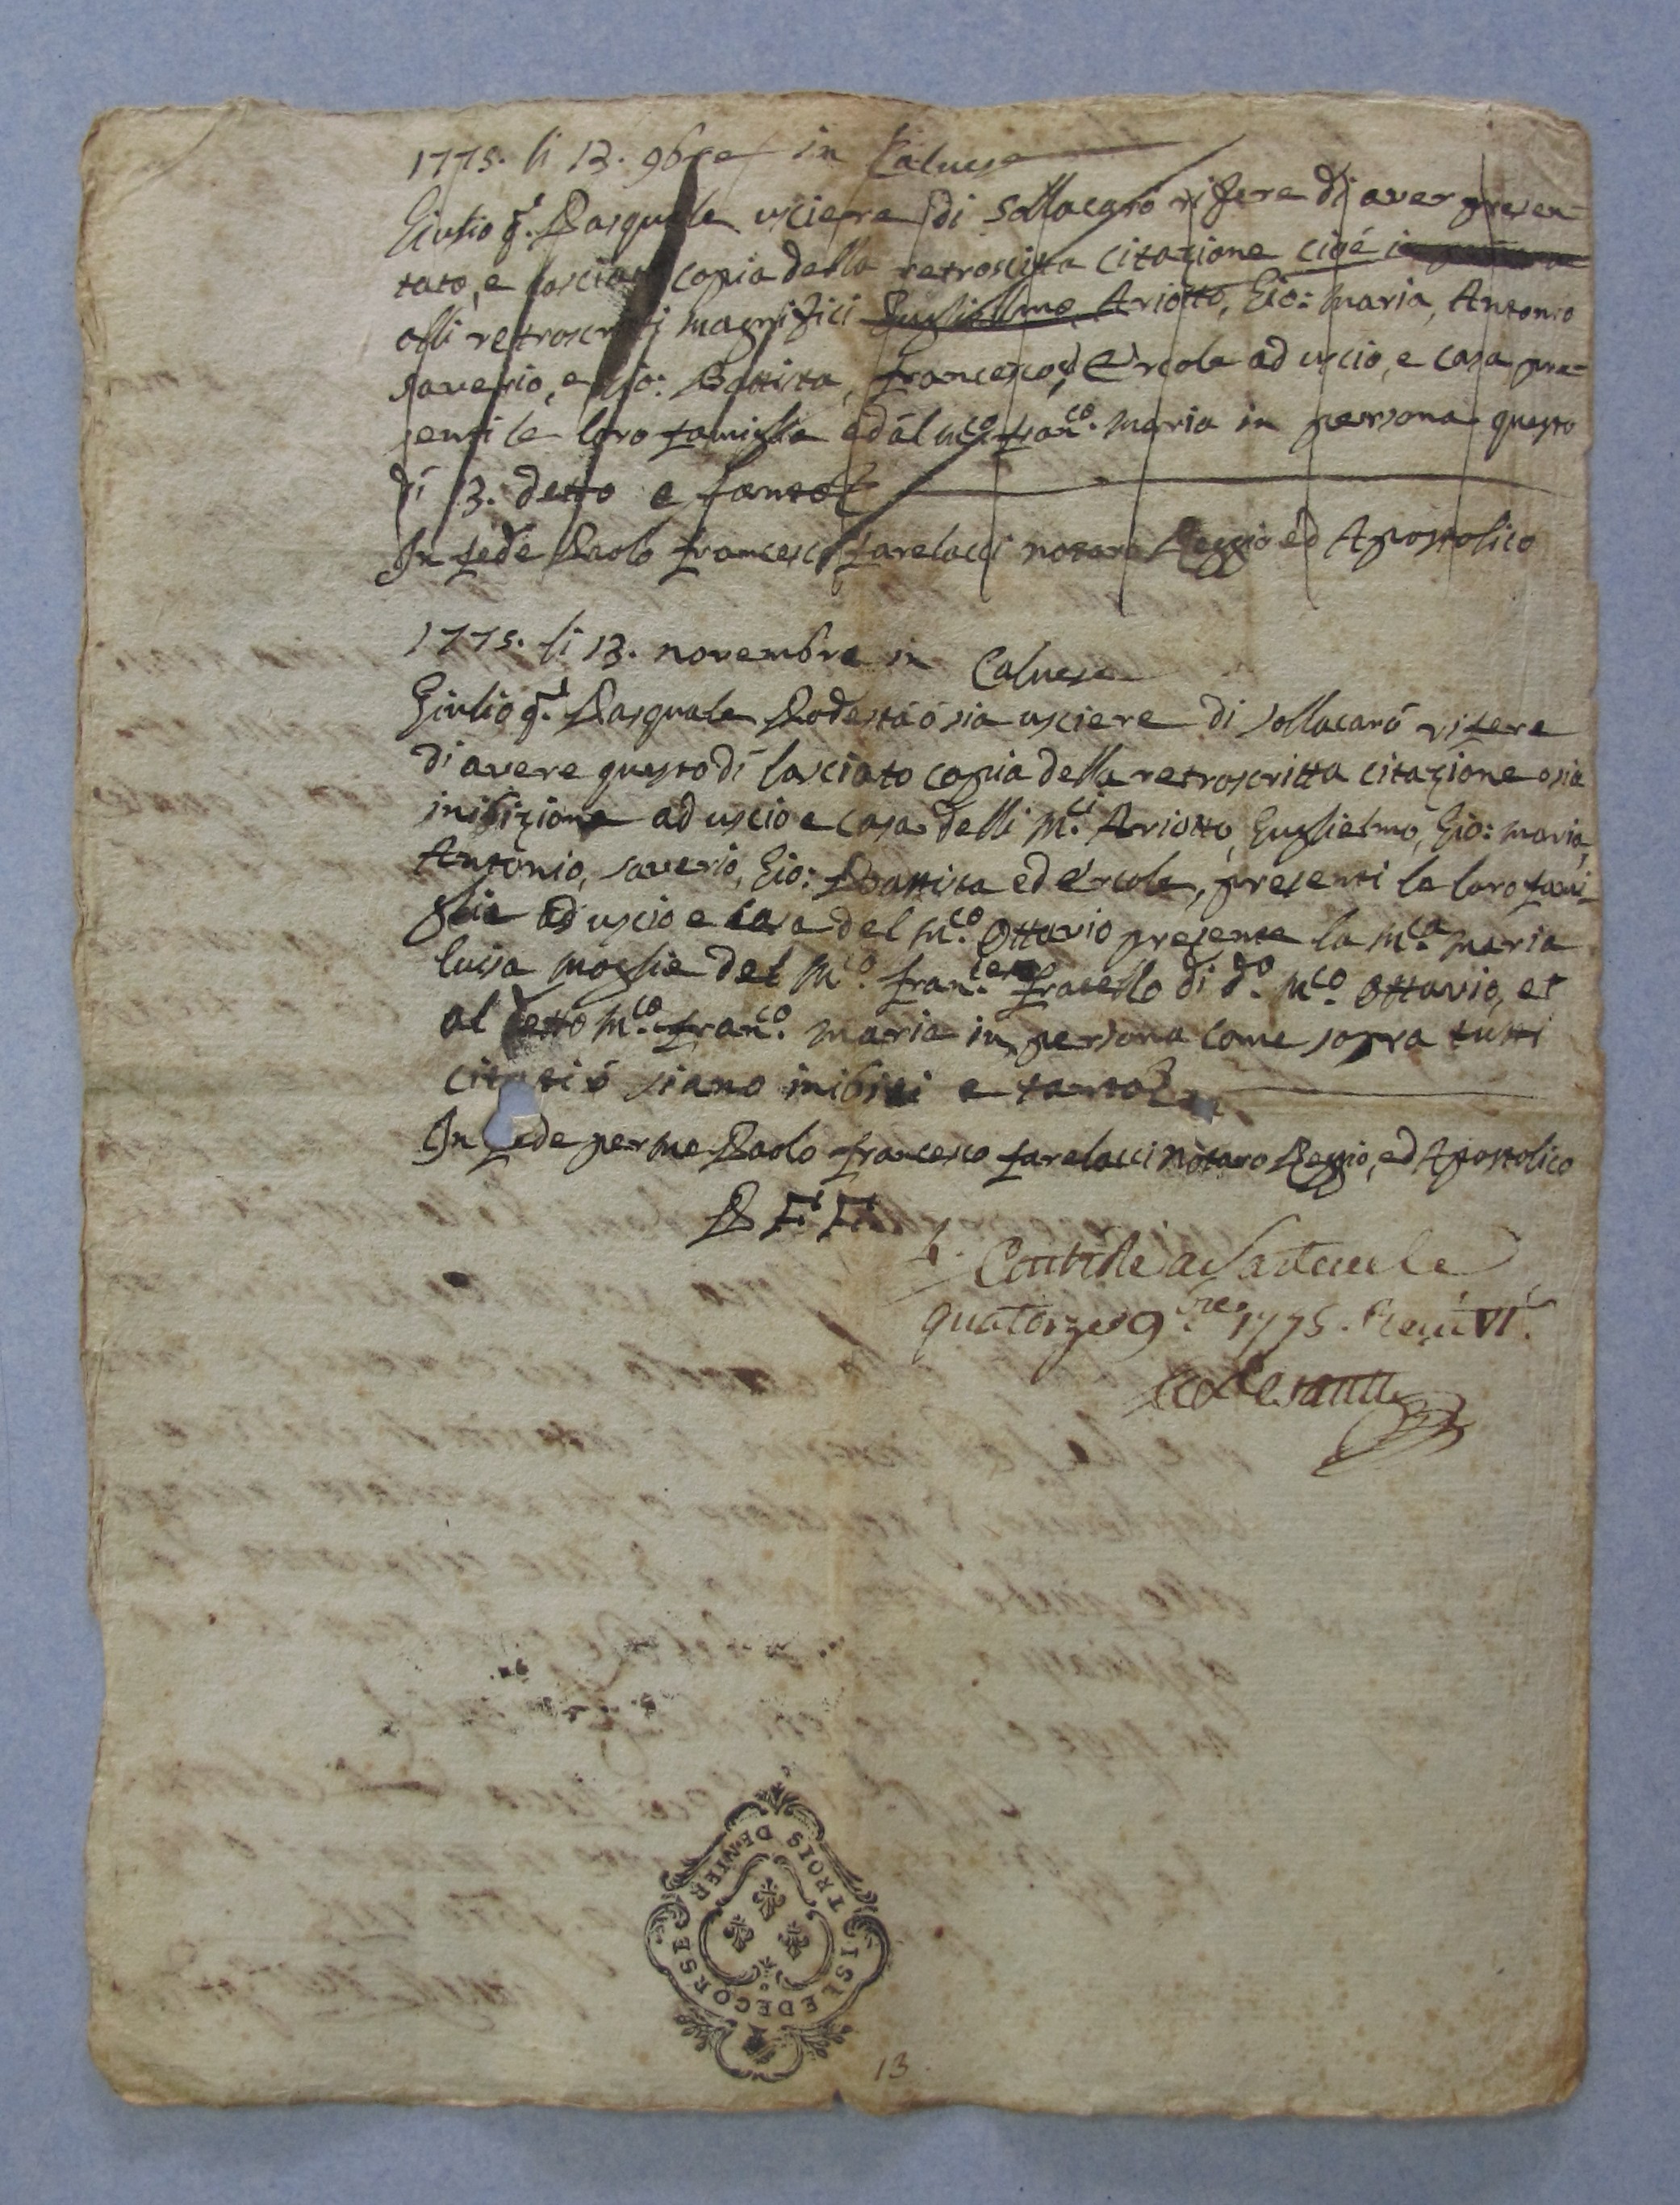 1775. li 13. 9bre in Calvese
Giulio q.^m Pasquale usciere di Sollacaró rifere di aver presen-
tato, e lasciato copia della retroscritta citazione cioé
alli retroscritti magnifici Guglielmo, Ariotto, Gio: Maria, Antonio
Saverio, e Gio: Battista, Francesco, Ercole ad uscio, e casa pre-
senti le loro famiglia ed al m.co Fran.co Maria in persona questo
dí 13. detto e tanto
In fede Paolo Francesco Farelacci notaro Reggio ed Apostolico
1775. li 13. novembre in Calvese
Giulio q.^m Pasquale Podestá ó sia usciere di Sollacaró rifere
di avere questo dí lasciato copia della retroscritta citazione osia
inibizione ad uscio e casa delli M.ci Ariotto, Guglielmo, Gio: Maria,
Antonio, Saverio, Gio: Battista ed Ercole, presenti la loro fami-
glia ad uscio e casa del M.co Ottavio presente la M.ca Maria
Luisa moglie del M.co Fran.cesco fratello di d.o M.co Ottavio, et
al detto M.co Fran.co Maria in persona come sopra tutti
citati ó siano inibiti e tanto
In fede per me Paolo Francesco Farelacci Notaro Reggio, ed Apostolico
P F F
Contrôle a
quatorze 9.bre 1775. Recu VI.s
ISLE DE CORSE
TROIS DENIER
13